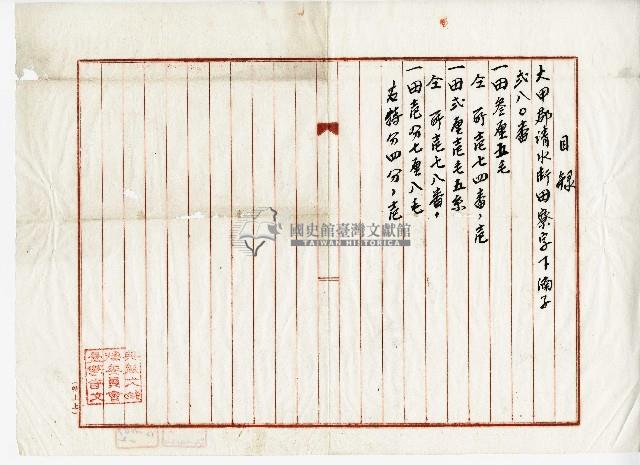 目錄
大甲郡清水街田寮字下湳子
弍八〇番
一田叁厘五毛
仝所壱七四番ノ壱
一田弍厘壱毛五糸
仝所壱七八番
一田壱分七厘八毛
右持分四分ノ壱
國史館臺灣文獻館
TAIWAN HISTORICA